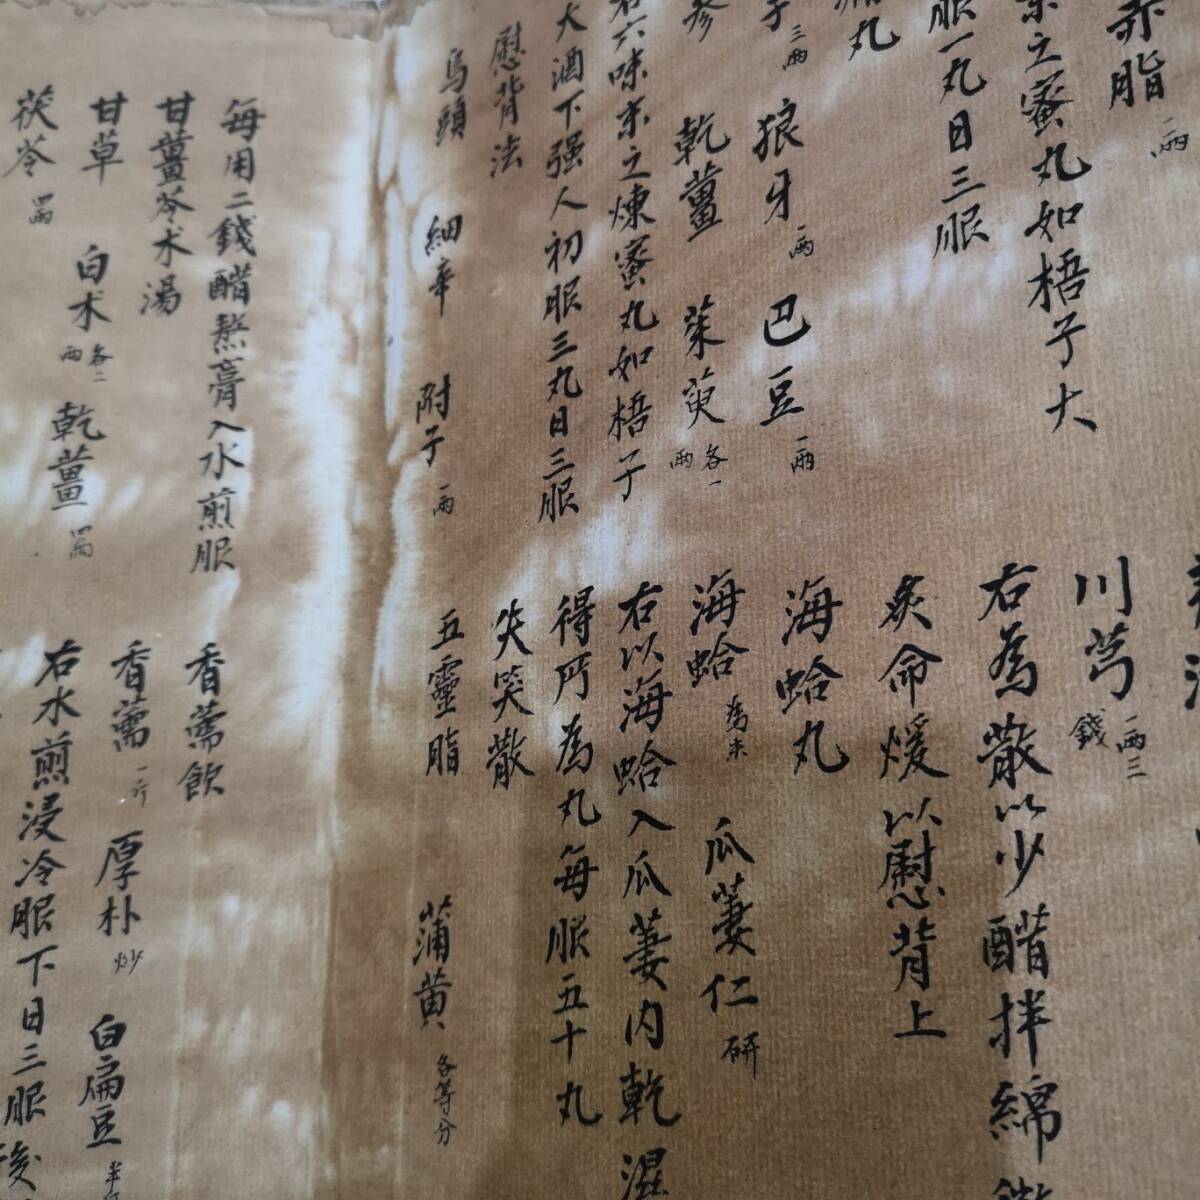 赤脂 一兩
末之蜜丸如梧子大
服一丸日三服
痛丸
子 三兩 狼牙 一兩 巴豆 一兩
參 乾薑 茱萸 各一兩
右六味末之煉蜜丸如梧子
大酒下强人初服三丸日三服
熨背法
烏頭 細辛 附子 一兩
川芎 一兩三錢
右為散以少醋拌綿
炙命煖以熨背上
海蛤丸
海蛤 為末 瓜蔞仁 研
右以海蛤入瓜蔞内乾濕
得所為丸每服五十丸
失笑散
五靈脂 蒲黄 各等分
每用二錢醋熬膏入水煎服
甘薑苓术湯
甘草 白术 各二兩 乾薑 四兩
茯苓 四兩
香薷飲
香薷 一斤 厚朴 炒 白扁豆 半
右水煎浸冷服下日三服